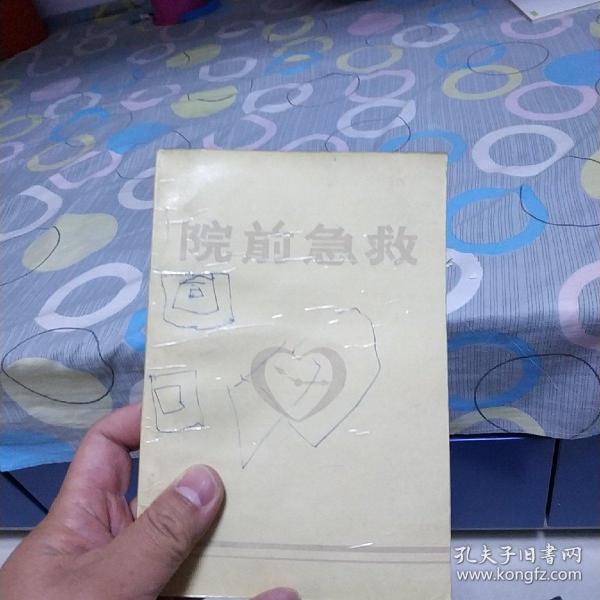 院前急救
孔夫子旧书网
www.kongfz.com